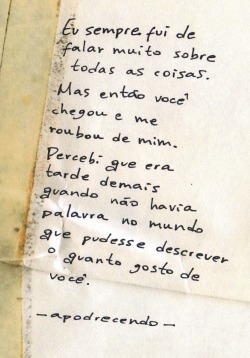 Eu sempre fui de
falar muito sobre
todas as coisas.
Mas então você
chegou e me
roubou de mim.
Percebi que era
tarde demais
quando não havia
palavra no mundo
que pudesse descrever
o quanto gosto de
você.
— apodrecendo —